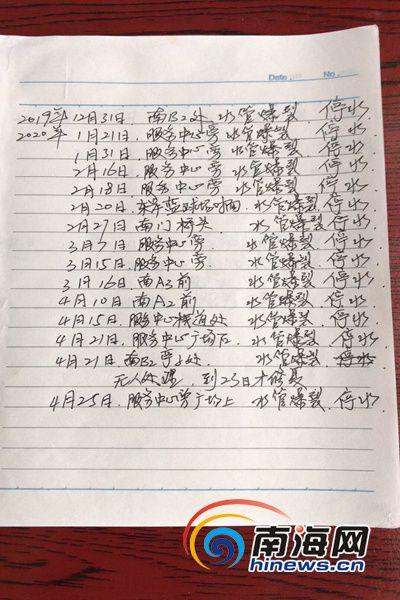 Date No.
2019年12月31日. 南B2处 水管爆裂. 停水
2020年 1月21日. 服务中心旁 水管爆裂. 停水.
1月31日. 服务中心旁 水管爆裂. 停水.
2月16日. 服务中心旁 水管爆裂. 停水.
2月18日. 服务中心旁 水管爆裂. 停水.
2月20日. 篮球场 水管爆裂. 停水.
2月27日. 南门桥头 水管爆裂. 停水.
3月7日. 服务中心旁 水管爆裂. 停水.
3月15日. 服务中心旁. 水管爆裂. 停水.
3月16日. 南A2前 水管爆裂. 停水.
4月10日. 南A2前 水管爆裂. 停水.
4月15日. 服务中心 处 水管爆裂. 停水.
4月21日. 服务中心广场右 水管爆裂. 停水.
4月21日. 南B2 处 水管爆裂. 停水.
无人处理, 到23日才修复
4月25日. 服务中心旁广场上 水管爆裂. 停水.
南海网
hinews.cn